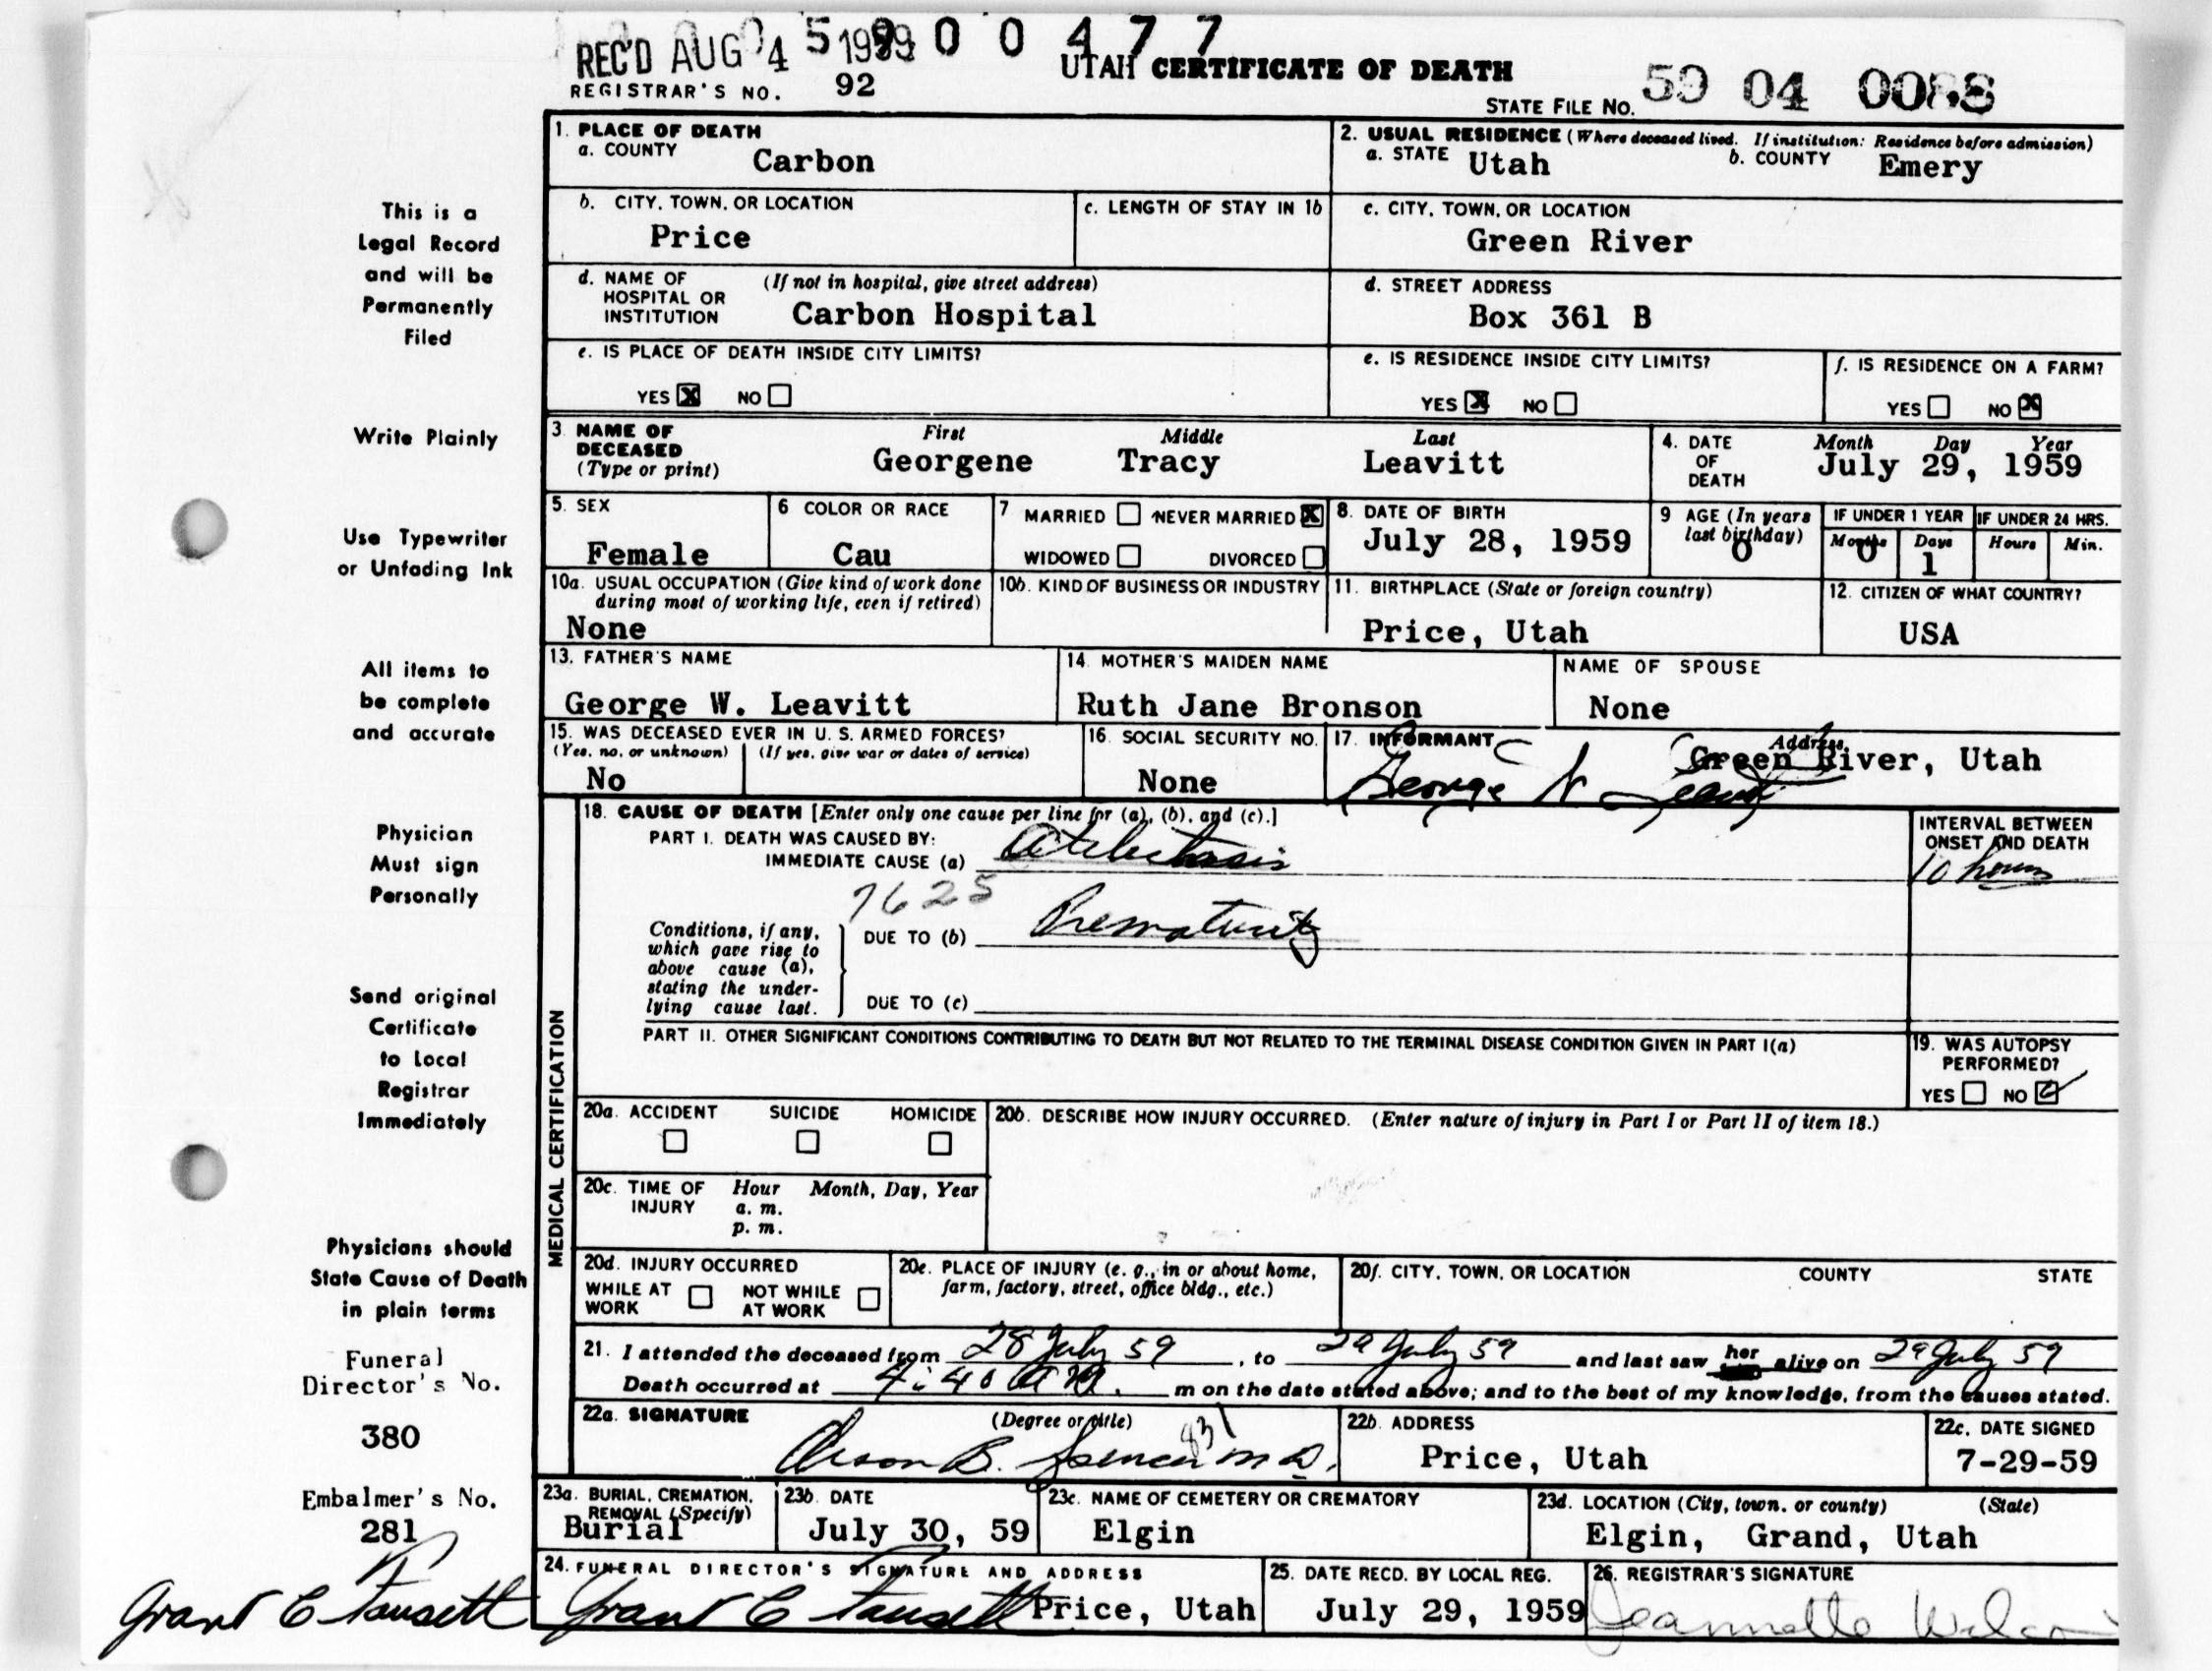 REC'D AUG 4 5 1959 0 0 4 7 7
UTAH CERTIFICATE OF DEATH
REGISTRAR'S NO. 92
STATE FILE NO. 59 04 0088
This is a
Legal Record
and will be
Permanently
Filed
Write Plainly
Use Typewriter
or Unfading Ink
All items to
be complete
and accurate
Physician
Must sign
Personally
Send original
Certificate
to Local
Registrar
Immediately
Physicians should
State Cause of Death
in plain terms
Funeral
Director's No.
380
Embalmer's No.
281
Grant C Fausett
1. PLACE OF DEATH
a. COUNTY Carbon
2. USUAL RESIDENCE (Where deceased lived. If institution: Residence before admission)
a. STATE Utah b. COUNTY Emery
b. CITY, TOWN, OR LOCATION
Price
c. LENGTH OF STAY IN 1b
c. CITY, TOWN, OR LOCATION
Green River
d. NAME OF (If not in hospital, give street address)
HOSPITAL OR
INSTITUTION Carbon Hospital
d. STREET ADDRESS
Box 361 B
e. IS PLACE OF DEATH INSIDE CITY LIMITS?
YES X NO
e. IS RESIDENCE INSIDE CITY LIMITS?
YES X NO
f. IS RESIDENCE ON A FARM?
YES NO X
3 NAME OF First Middle Last
DECEASED
(Type or print) Georgene Tracy Leavitt
4. DATE Month Day Year
OF July 29, 1959
DEATH
5. SEX
Female
6 COLOR OR RACE
Cau
7 MARRIED NEVER MARRIED X
WIDOWED DIVORCED
8. DATE OF BIRTH
July 28, 1959
9 AGE (In years
last birthday)
0
IF UNDER 1 YEAR
Months Days
0 1
IF UNDER 24 HRS.
Hours Min.
10a. USUAL OCCUPATION (Give kind of work done
during most of working life, even if retired)
None
10b. KIND OF BUSINESS OR INDUSTRY
11. BIRTHPLACE (State or foreign country)
Price, Utah
12. CITIZEN OF WHAT COUNTRY?
USA
13. FATHER'S NAME
George W. Leavitt
14. MOTHER'S MAIDEN NAME
Ruth Jane Bronson
NAME OF SPOUSE
None
15. WAS DECEASED EVER IN U. S. ARMED FORCES?
(Yes, no, or unknown) (If yes, give war or dates of service)
No
16. SOCIAL SECURITY NO.
None
17. INFORMANT Address
Green River, Utah
George W Leavitt
MEDICAL CERTIFICATION
18. CAUSE OF DEATH [Enter only one cause per line for (a), (b), and (c).]
PART I. DEATH WAS CAUSED BY:
IMMEDIATE CAUSE (a) Atelectasis
INTERVAL BETWEEN
ONSET AND DEATH
10 hours
7625
Conditions, if any,
which gave rise to
above cause (a),
stating the under-
lying cause last.
DUE TO (b) Prematurity
DUE TO (c)
PART II. OTHER SIGNIFICANT CONDITIONS CONTRIBUTING TO DEATH BUT NOT RELATED TO THE TERMINAL DISEASE CONDITION GIVEN IN PART I(a)
19. WAS AUTOPSY
PERFORMED?
YES NO ✓
20a. ACCIDENT SUICIDE HOMICIDE
20b. DESCRIBE HOW INJURY OCCURRED. (Enter nature of injury in Part I or Part II of item 18.)
20c. TIME OF Hour Month, Day, Year
INJURY a. m.
p. m.
20d. INJURY OCCURRED
WHILE AT NOT WHILE
WORK AT WORK
20e. PLACE OF INJURY (e. g., in or about home,
farm, factory, street, office bldg., etc.)
20f. CITY, TOWN, OR LOCATION COUNTY STATE
21. I attended the deceased from 28 July 59, to 29 July 59 and last saw her alive on 29 July 59
Death occurred at 4:40 A M. m on the date stated above; and to the best of my knowledge, from the causes stated.
22a. SIGNATURE (Degree or title) 431
Orson B. Spencer M.D.
22b. ADDRESS
Price, Utah
22c. DATE SIGNED
7-29-59
23a. BURIAL, CREMATION,
REMOVAL (Specify)
Burial
23b. DATE
July 30, 59
23c. NAME OF CEMETERY OR CREMATORY
Elgin
23d. LOCATION (City, town, or county) (State)
Elgin, Grand, Utah
24. FUNERAL DIRECTOR'S SIGNATURE AND ADDRESS
Grant C Fausett Price, Utah
25. DATE RECD. BY LOCAL REG.
July 29, 1959
26. REGISTRAR'S SIGNATURE
Jeannette